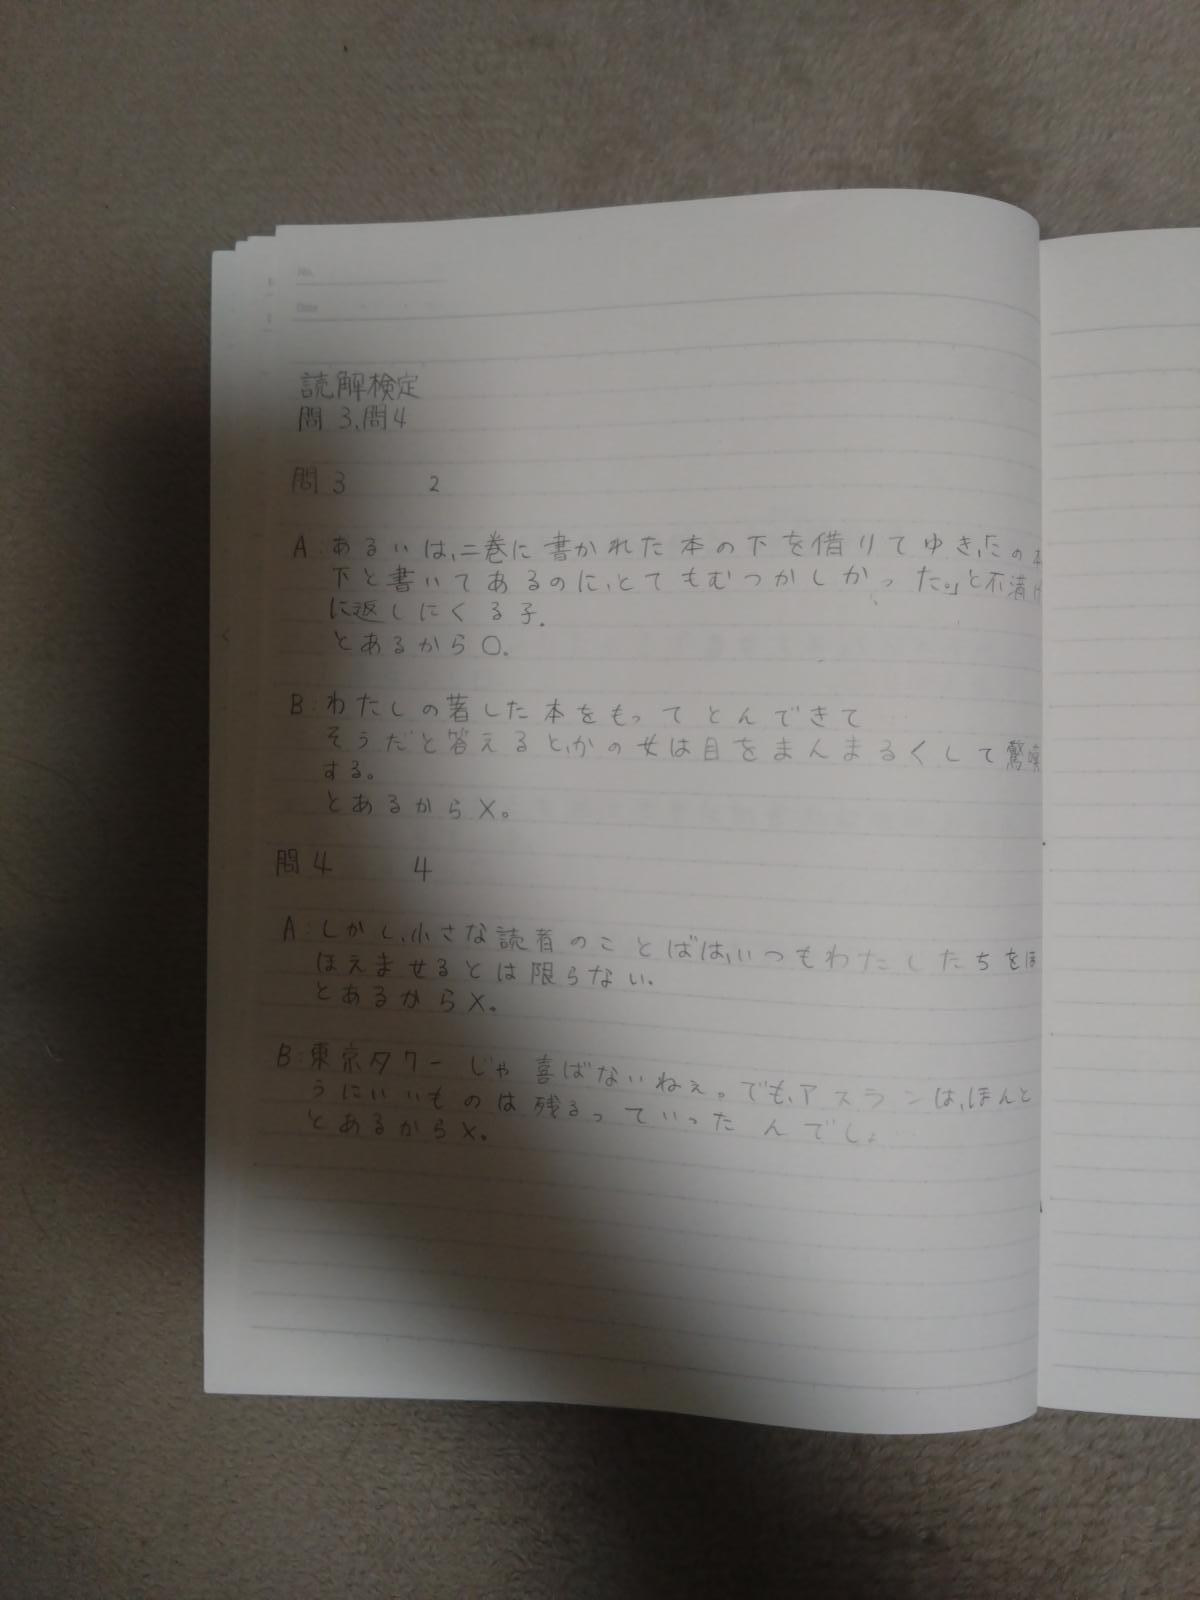 No.
Date
読解検定
問3、問4
問3 2
A:あるいは、二巻に書かれた本の下を借りてゆき、
下と書いてあるのに、とてもむつかしかった。」と不満げ
に返しにくる子.
とあるから○。
B:わたしの著した本をもってとんできて
そうだと答えると、かの女は目をまんまるくして驚嘆
する。
とあるから×。
問4 4
A:しかし、小さな読者のことばは、いつもわたしたちをほ
ほえませるとは限らない.
とあるから×。
B:東京タワーじゃ喜ばないねえ。でも、アスランは、ほんと
うにいいものは残るっていったんでしょ
とあるから×。